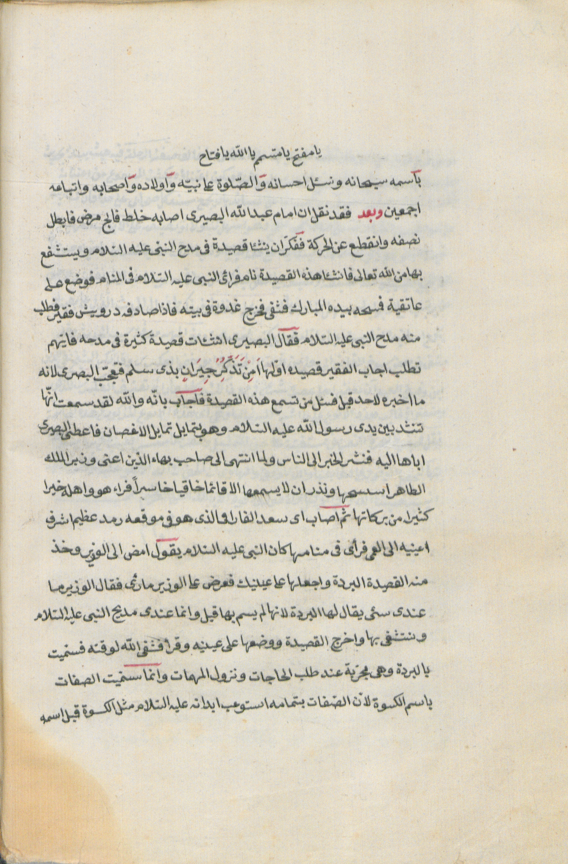 يا مفتح يا متمم يا الله يا فتاح
باسمه سبحانه ونسئل احسانه والصلوة على نبيه واولاده واصحابه واتباعه
اجمعين وبعد فقد نقل ان امام عبد الله البصيرى اصابه خلط فالج مرض فابطل
نصفه وانقطع عن الحركة ففكر ان ينشا قصيدة فى مدح النبى عليه السلام ويستشفع
بها من الله تعالى فانشا هذه القصيدة نام فراى النبى عليه السلام فى المنام فوضع على
عاتقيه فمسحه بيده المبارك فشفى فخرج غدوة فى بيته فاذا صادفه درويش فقير فطلب
منه مدح النبى عليه السلام فقال البصيرى انشئات قصيدة كثيرة فى مدحه فايتهم
تطلب اجاب الفقير قصيده اولها اَمِنْ تَذَكُّرِ جِيرَانٍ بذى سلم فتعجب البصرى لانه
ما اخبره لاحد قبل فسئل من تسمع هذه القصيدة فاجاب بانه والله لقد سمعت انها
تنشد بين يدى رسول الله عليه السلام وهو يتمايل تمايل الاغصان فاعطى البصيرى
اياها اليه فنشر الخبر الى الناس ولما انتهى الى صاحب بهاء الدين اعنى وزير الملك
الطاهر استنسخها ونذر ان لا يسمعها الا قائما حافيا حاسرا فراء هو واهله خيرا
كثيرا من بركاتها ثم اصاب اى سعد الفارقى الذى هو فى موقعه رمد عظيم اشرف
اعينيه الى العمى فراى فى منامها كان النبى عليه السلام يقول امض الى الوزير وخذ
منه القصيدة البردة واجعلها على عينيك فعرض على الوزير ما رئى فقال الوزير ما
عندى سئى يقال لها البردة لانها لم يسم بها قبل وانما عندى مديح النبى عليه السلام
وننتشفى بها واخرج القصيدة ووضعها على عينيه وقرأ فشفى الله لوقته فسميت
بالبردة وهى مجربة عند طلب الحاجات ونزول المهمات وانما سميت الصفات
باسم الكسوة لان الصفات بتمامه استوعب ابدانه عليه السلام مثل الكسوة قبل اسمه